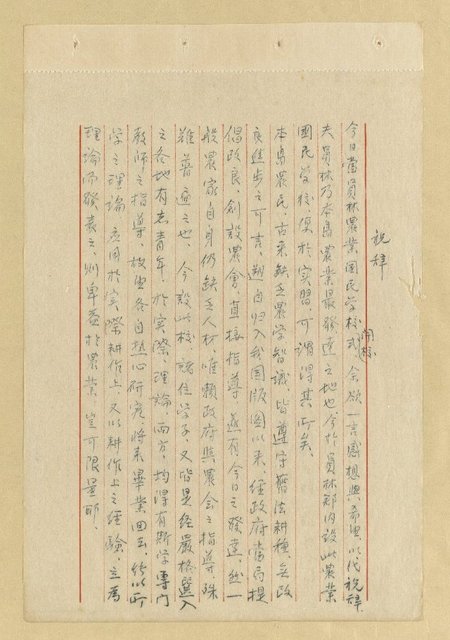 祝辞
今日當員林農業國民學校開校式、余欲一言感想與希望、以代祝辞、
夫員林乃本島農業最發達之地也、今於員林郡內設此農業
國民學校、便於實習、可謂得其所矣、
本島農民、古來缺乏農學智識、皆遵守舊法耕種、無改
良進步之可言、迨自歸入我國版圖以來、經政府當局提
倡改良、創設農會直接指導、遂有今日之發達、然一
般農家自身仍缺乏人材、唯賴政府與農會之指導、殊
難普遍之也、今設此校、諸位學子、又皆是經嚴格選入
之各地有志青年、於實際、理論兩方、均得有斯學專門
教師之指導、故望各自熱心研究、將來畢業回去、能以所
學之理論應用於實際耕作上、又以耕作上之經驗、立為
理論而發表之、則卑益於農業、豈可限量耶、